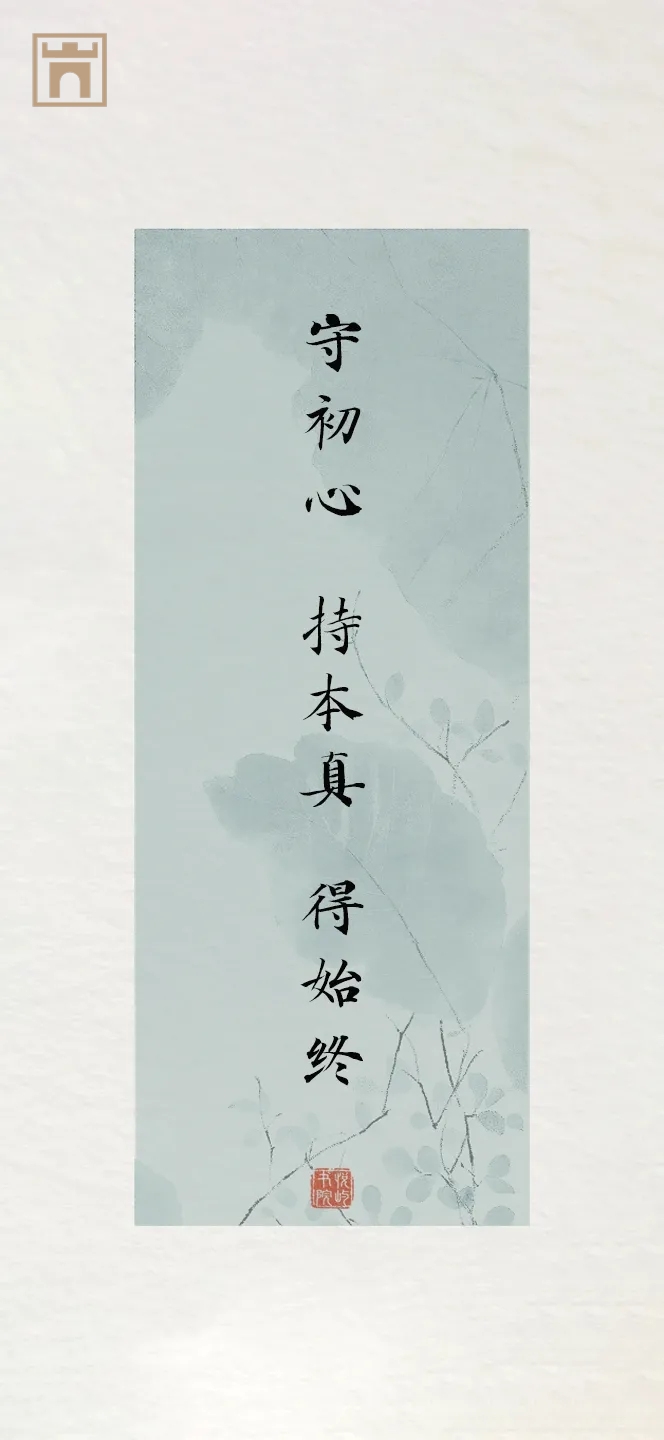 守初心 持本真 得始终
悦屿
书院